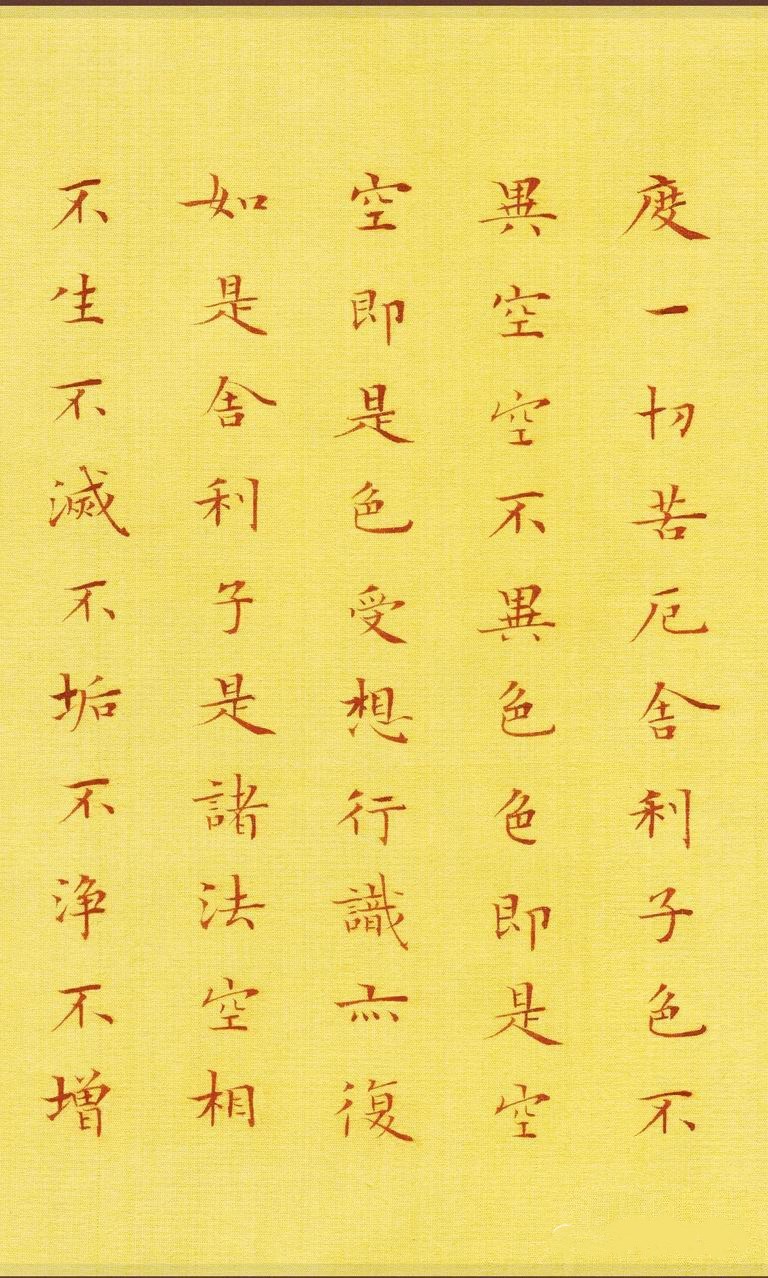 度一切苦厄舍利子色不
異空空不異色色即是空
空即是色受想行識亦復
如是舍利子是諸法空相
不生不滅不垢不浄不增